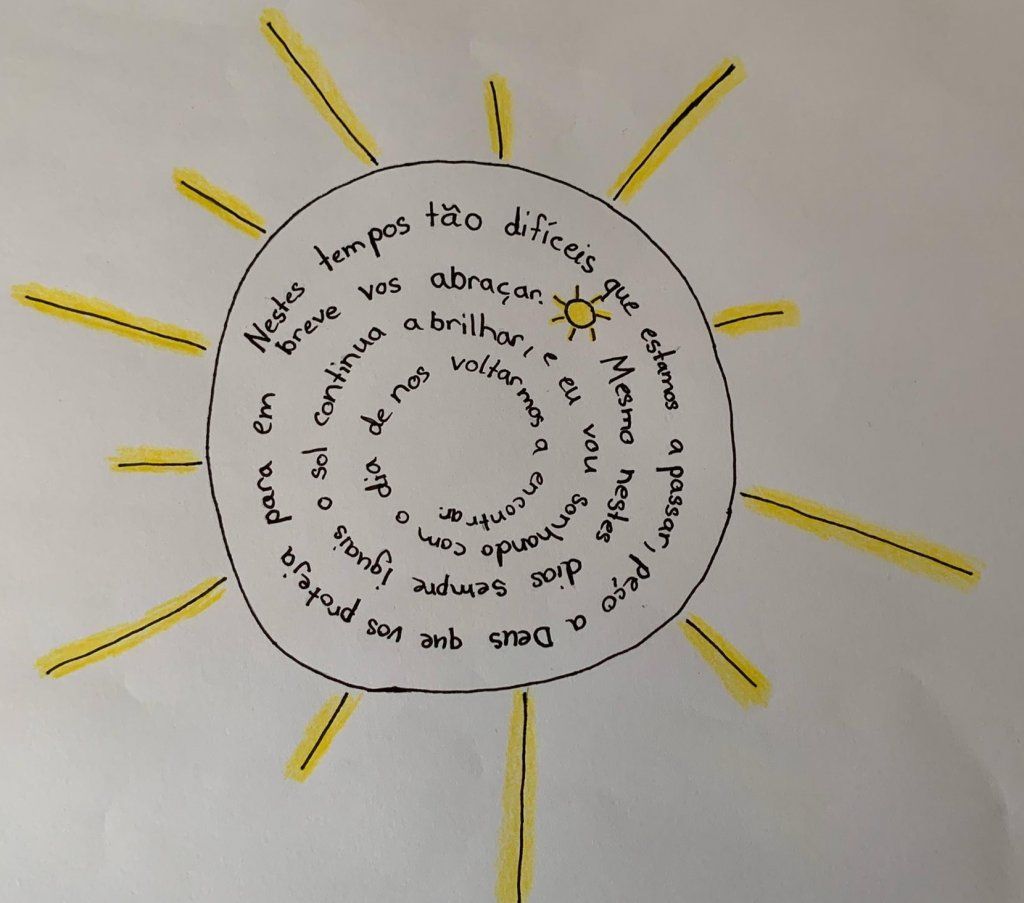 Nestes tempos tão difíceis que estamos a passar, peço a Deus que vos proteja para em
breve vos abraçar. Mesmo nestes dias sempre iguais o sol continua a brilhar, e eu vou sonhando com o dia de nos voltarmos a encontrar.